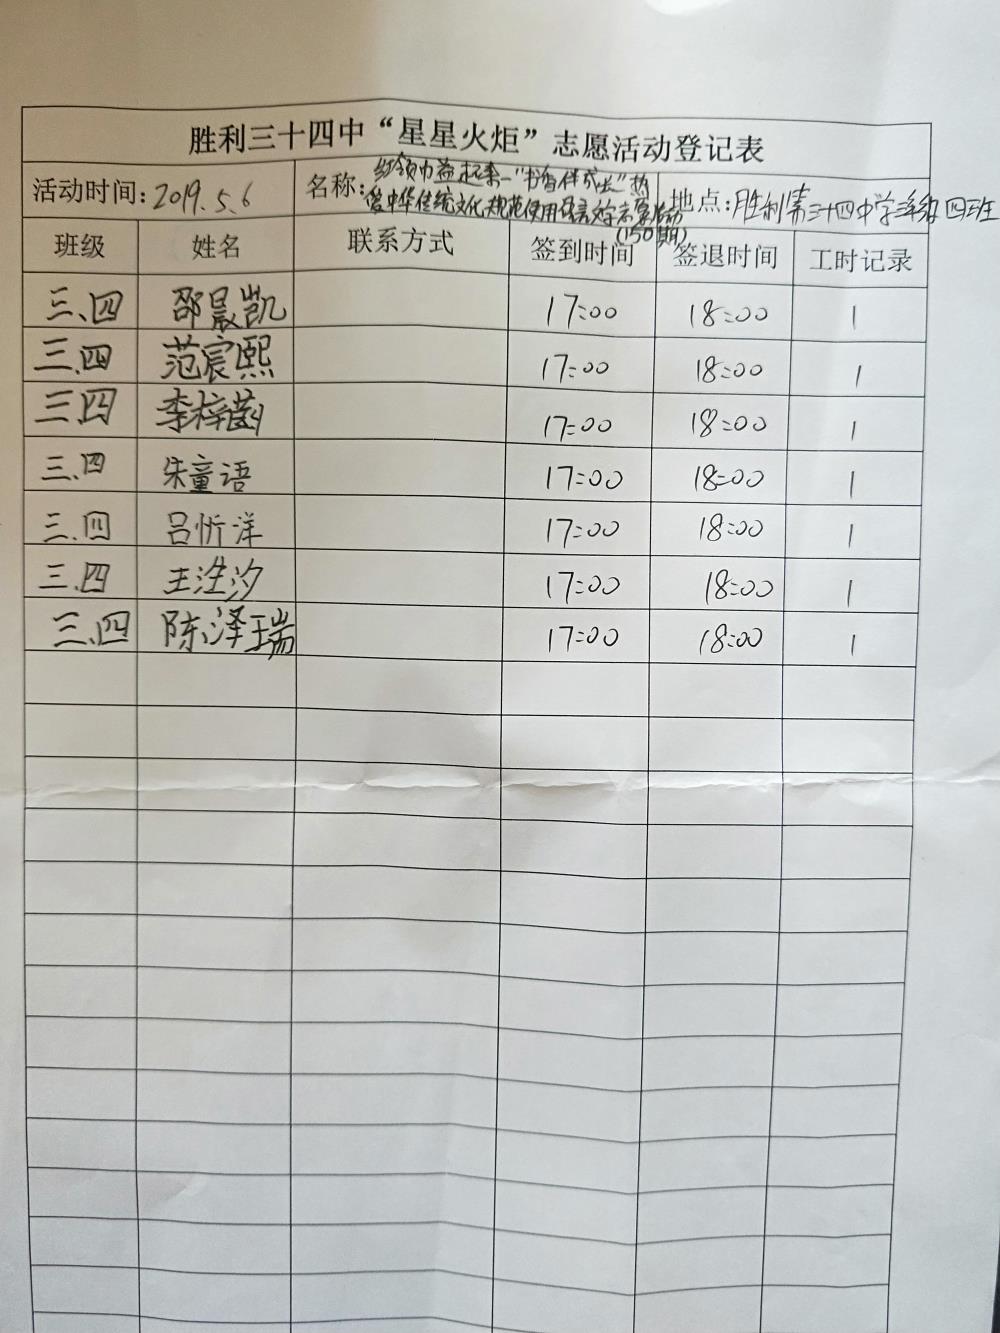 胜利三十四中“星星火炬”志愿活动登记表
活动时间：2019.5.6 名称：红领巾益起来—“书香伴成长”热爱中华传统文化规范使用语言文字志愿活动（150期） 地点：胜利第三十四中学三年级四班
班级 姓名 联系方式 签到时间 签退时间 工时记录
三、四 邵晨凯 17:00 18:00 1
三、四 范宸熙 17:00 18:00 1
三四 李梓菡 17:00 18:00 1
三、四 朱童语 17:00 18:00 1
三、四 吕忻洋 17:00 18:00 1
三、四 王泩汐 17:00 18:00 1
三、四 陈泽瑞 17:00 18:00 1